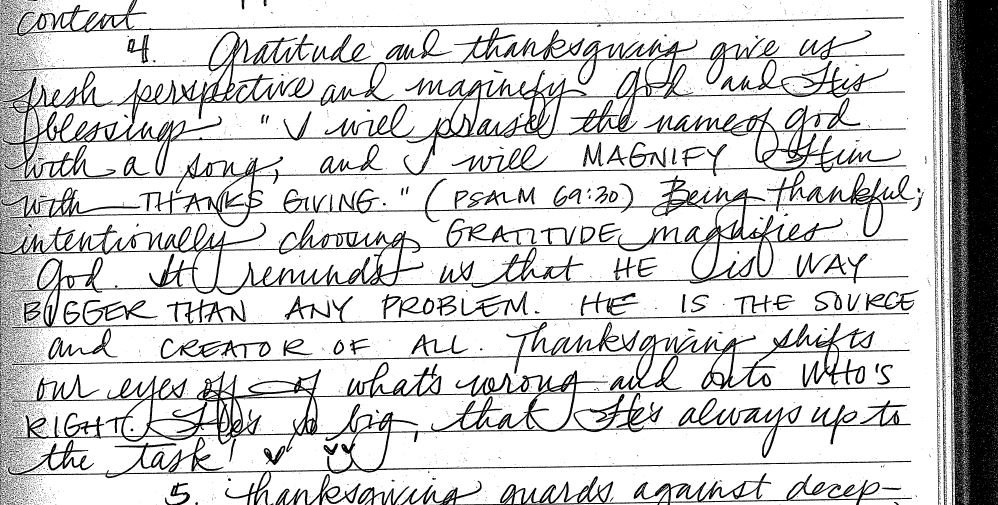 content
4. Gratitude and thanksgiving give us
fresh perspective and maginefy God and His
blessings "I will praise the name of God
with a song, and I will MAGNIFY Him
with THANKS GIVING." (PSALM 69:30) Being thankful,
intentionally choosing GRATITUDE magnifies
God. It reminds us that HE is WAY
BIGGER THAN ANY PROBLEM. HE IS THE SOURCE
and CREATOR OF ALL. Thanksgiving shifts
our eyes off of what's wrong and onto WHO'S
RIGHT. He's so big, that He's always up to
the task!
5. Thanksgiving guards against decep-